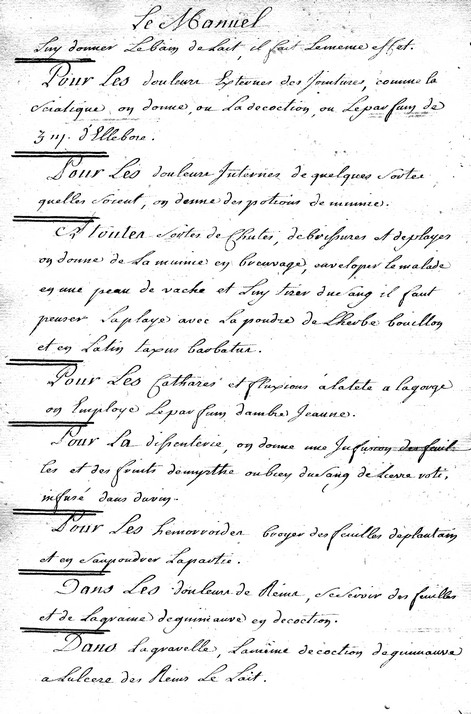 Le Manuel
Luy donner Le bain de Lait, il fait Lememe effet.
Pour Les douleurs Externes des Jointures, comme la
Sciatique, on donne, ou La decoction, ou Leparfum de
3 iij. d'Ellebore.
Pour Les douleurs Internes de quelques Sortes
quelles Soient, on donne des potions de mumie.
A toutes Sortes de Chutes, de brissures et deplayes
on donne de La mumie en breuvage, enveloper le malade
en une peau de vache et Luy tirer du Sang il faut
penser Laplaye avec La poudre de Lherbe bouillon
et en Latin taxus barbatus.
Pour Les Catharés et fluxions alatete a lagorge
on Employe Leparfum dambre Jeaune.
Pour La dissenterie, on donne une Infusion des feuil
les et des fruits demyrthe oubien du Sang de Lievre roti,
infusé dans duvin.
Pour Les hemorroides broyer des feuilles deplantain
et en Saupoudrer Lapartie.
Dans Les douleurs de Reins, se servir des feuilles
et de Lagraine deguimauve en decoction.
Dans lagravelle, Lamême decoction deguimauve
a Lulcere des Reins Le Lait.